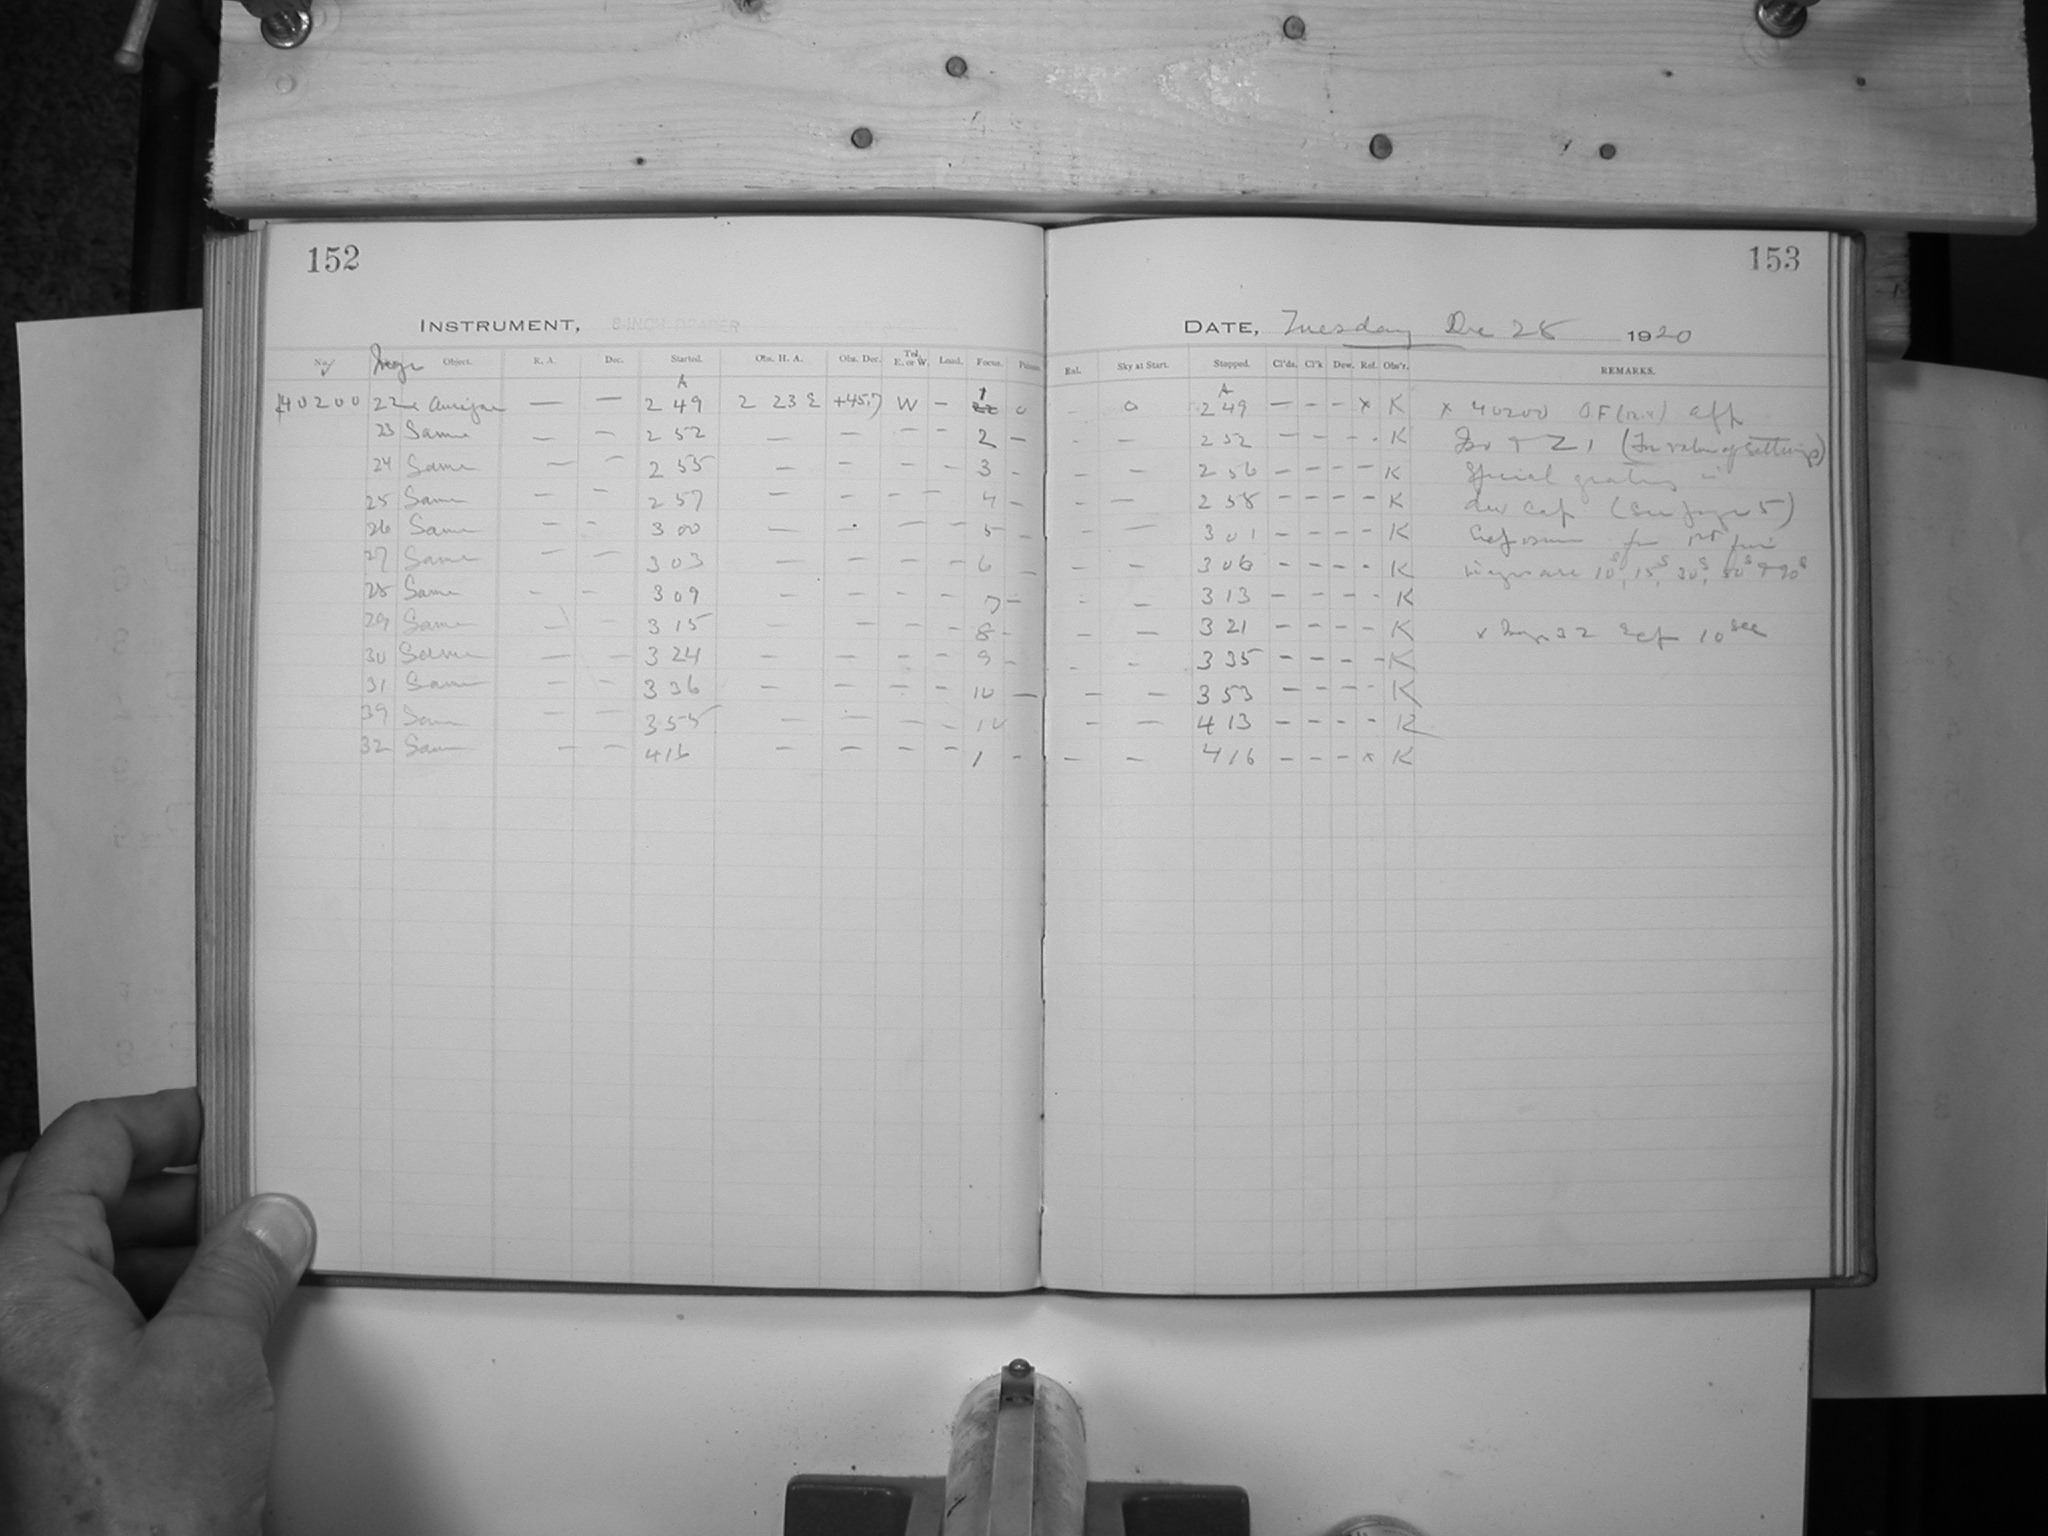 152
153
INSTRUMENT, 8-INCH DRAPER
DATE, Tuesday Dec 28 1920
No. Object. R. A. Dec. Started. Obs. H. A. Obs. Dec. Tel. E. or W. Load. Focus. Rel. Sky at Start. Stopped. Cl'ds. Cl'k Dew. Ref. Obs'r. REMARKS.
A A
40200 22 Aurigae — — 2 49 2 23 E +45.7 W — 1 0 - 0 2 49 — — — x K x 40200
23 Same — — 2 52 — — — — 2 — - — 2 52 — — — - K (For value of settings)
24 Same — — 2 55 — — — — 3 - - — 2 56 — — — — K Special grating in
25 Same — — 2 57 — — — — 4 — - — 2 58 — — — — K dew cap (See page 5)
26 Same — — 3 00 — — — — 5 — - — 3 01 — — — — K Exposures for 1st five
27 Same — — 3 03 — — — — 6 — - — 3 06 — — — - K images are 10s, 15s, 30s, 50s + 90s
28 Same — — 3 09 — — — — 7 — - — 3 13 — — — — K
29 Same — — 3 15 — — — — 8 - - — 3 21 — — — — K x Image 32 Exp 10 sec
30 Same — — 3 24 — — — — 9 - - — 3 35 — — — - K
31 Same — — 3 36 — — — — 10 — - — 3 53 — — — - K
39 Same — — 3 55 — — — — 10 - — 4 13 — — — - K
32 Same — — 4 16 — — — — 1 - — — 4 16 — — — x K